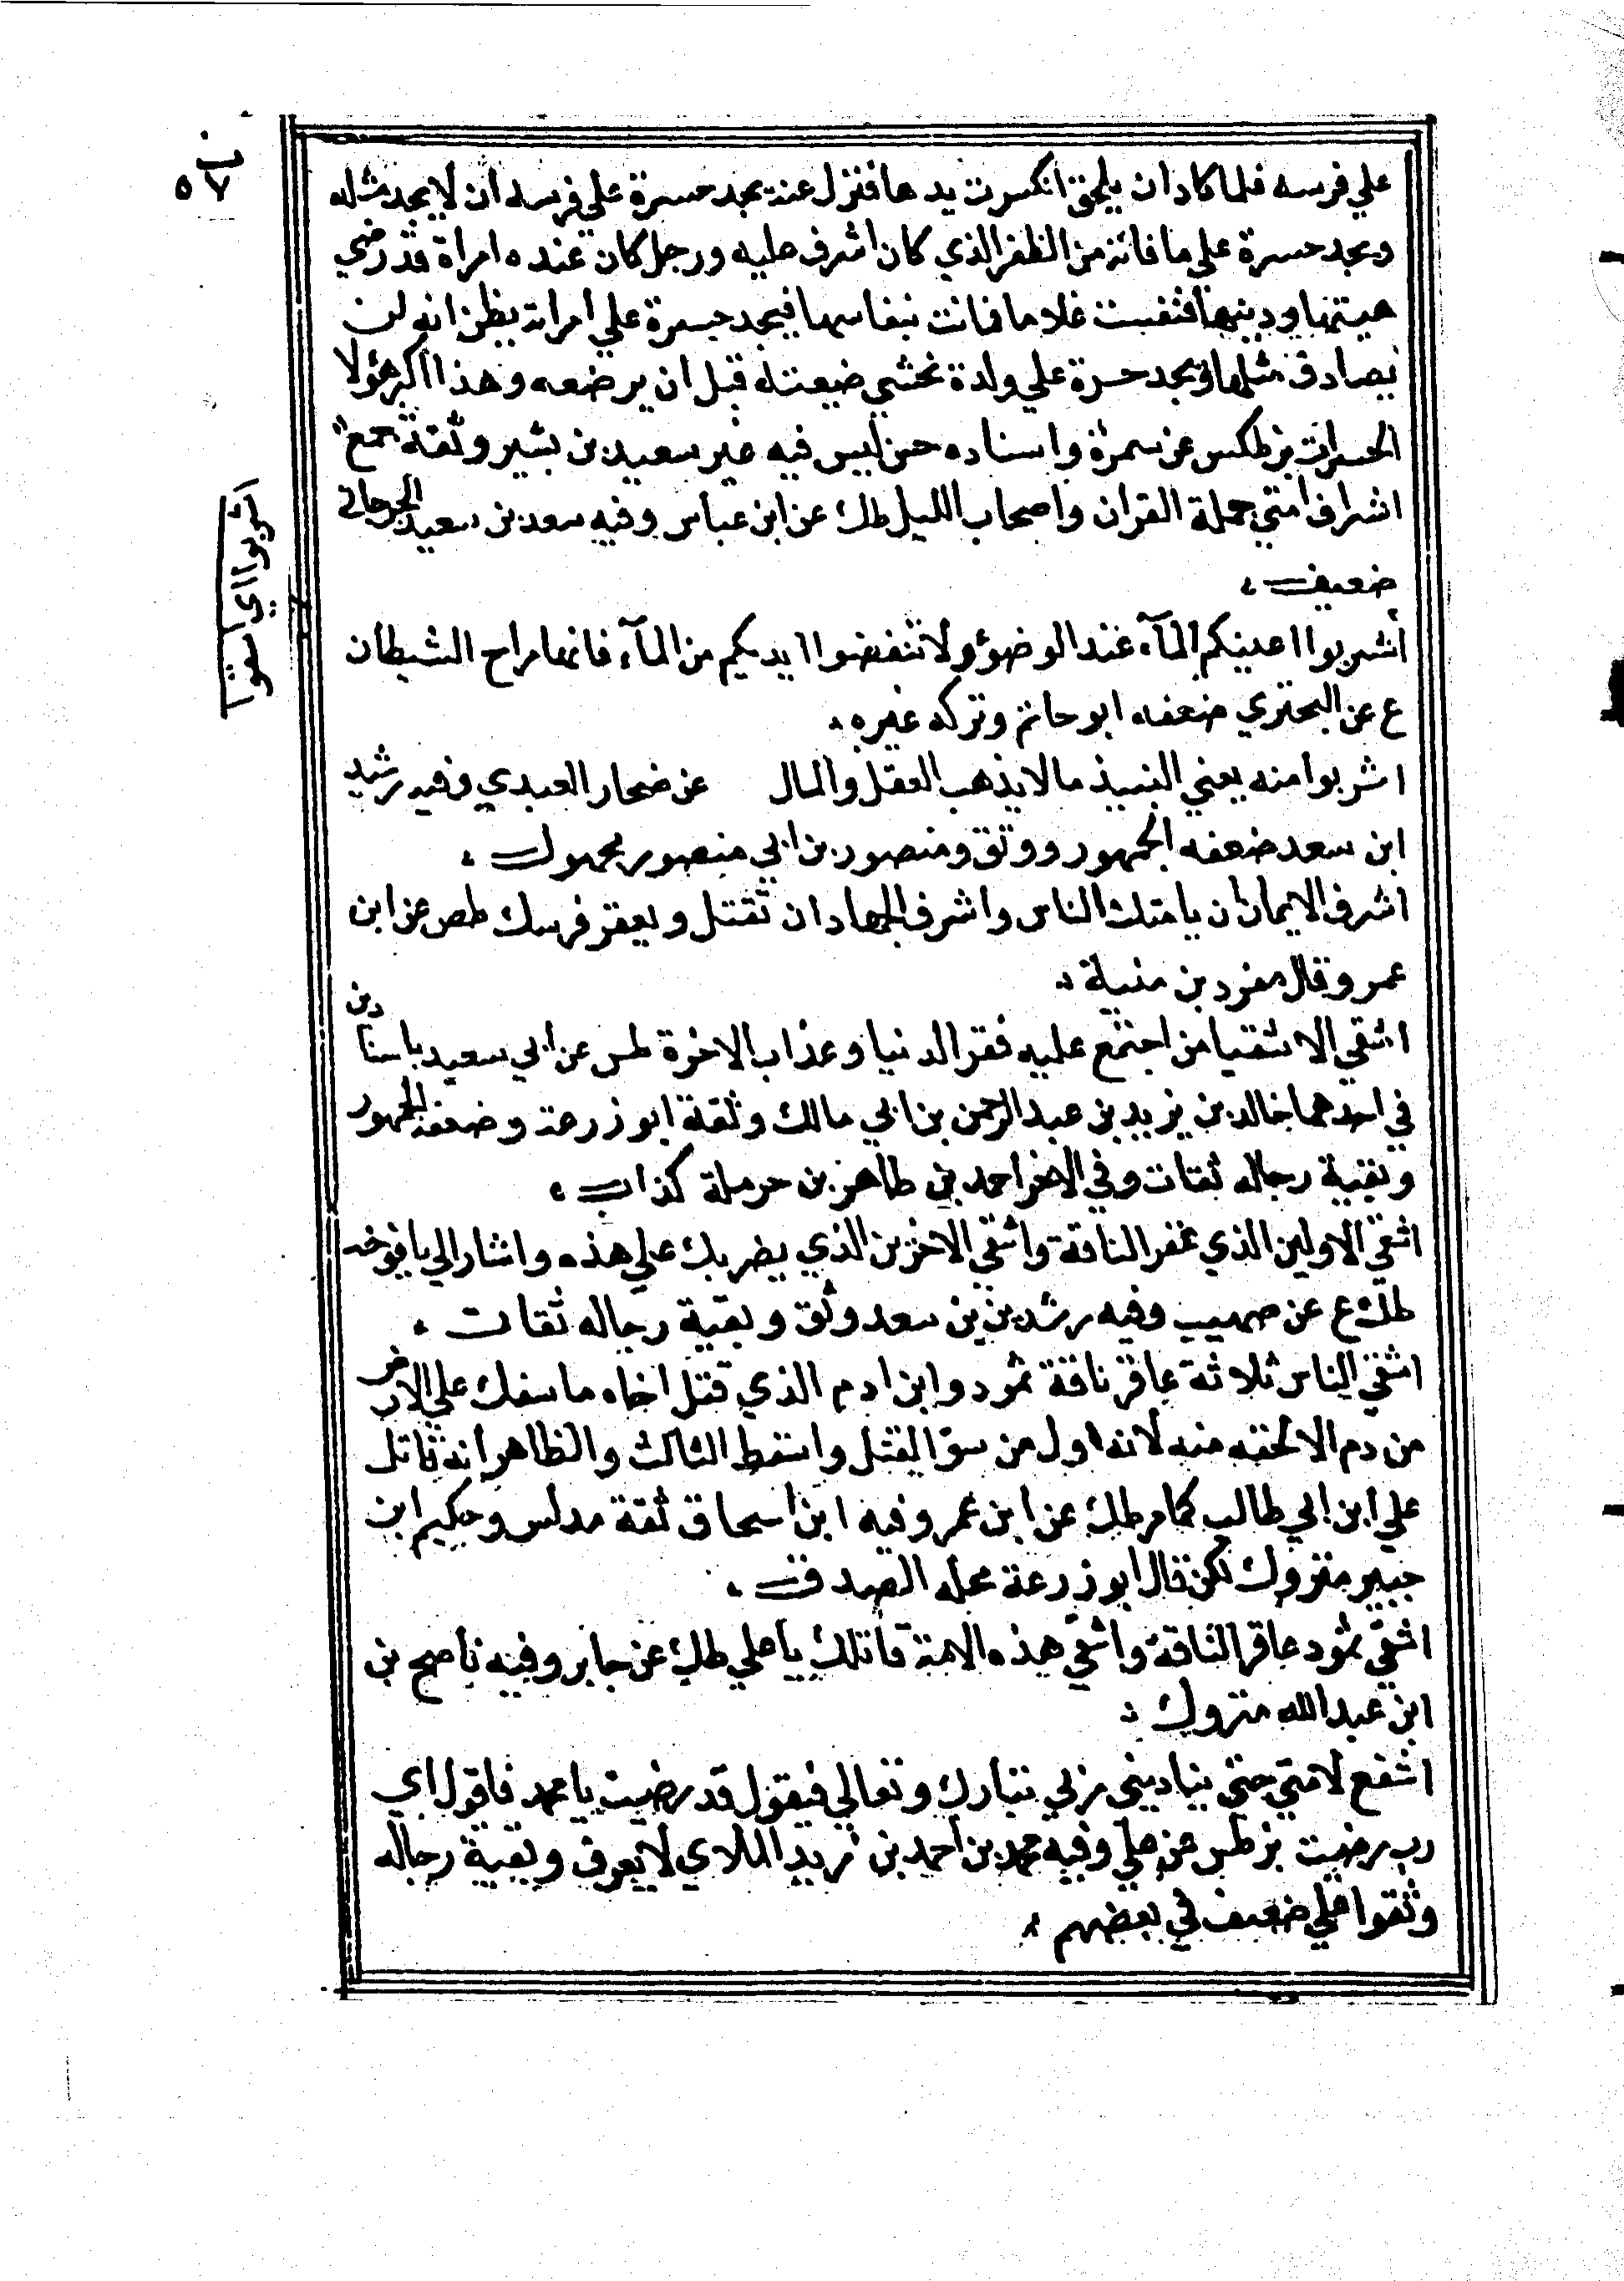 ٥٧
علي فرسه فلما كاد ان يلحق انكسرت يدها فنزل عنه يجد حسرة علي فرسه ان لا يجد مثله
ويجد حسرة علي ما فاته من الظفر الذي كان اشرف عليه ورجل كان عنده امراة قد رضي
هيتها ودينها فنفست غلاما فماتت بنفاسها فيجد حسرة علي امراته يظن انه لن
يصادف مثلها ويجد حسرة علي ولده نخشي ضيعته قبل ان يرضعه وهذا اكبر هؤلا
الحسرات بز طكس عن سمرة واسناده حسن ليس فيه غير سعيد بن بشير وثقة جمع
اشراف امتي حملة القران واصحاب الليل طك عن ابن عباس وفيه سعد بن سعيد الجرجاني
ضعيف
أشربوا اعينكم المآء عند الوضؤ ولا تنفضوا ايديكم من المآء فانها مراح الشيطان
ع عن البختري ضعفه ابو حاتم وتركه غيره
اشربوا منه يعني النبيذ ما لا يذهب العقل والمال عن ضحار العبدي وفيه رشيد
ابن سعد ضعفه الجمهور ووثق ومنصور بن ابي منصور مجهول
اشرف الايمان ان يامنك الناس واشرف الجهاد ان تقتل ويعقر فرسك طص عن ابن
عمر وقال مفرد بن منبة
اشقي الاشقيا من اجتمع عليه فقر الدنيا وعذاب الاخرة طس عن ابي سعيد باسنادين
في احدهما خالد بن يزيد بن عبد الرحمن بن ابي مالك وثقة ابو زرعة وضعفه الجمهور
وبقية رجاله ثقات وفي الاخر احمد بن طاهر بن حرملة كذاب
اشقي الاولين الذي عقر الناقة واشقي الاخرين الذي يضربك علي هذه واشار الي يافوخه
طك ع عن صهيب وفيه رشدين بن سعد وثق وبقية رجاله ثقات
اشقي الناس ثلاثة عاقر ناقة ثمود وابن ادم الذي قتل اخاه ما سفك علي الارض
من دم الا لحقه منه لانه اول من سن القتل واسقط الثالث والظاهر انه قاتل
علي ابن ابي طالب كما مر طك عن ابن عمر وفيه ابن اسحاق ثقة مدلس وحكيم ابن
جبير متروك لكن قال ابو زرعة محله الصدق
اشقي ثمود عاقر الناقة واشقي هذه الامة قاتلك يا علي طك عن جابر وفيه ناصح بن
ابن عبد الله متروك
اشفع لامتي حتي يناديني ربي تبارك وتعالي فيقول قد رضيت يا محمد فاقول اي
رب رضيت بز طس عن علي وفيه محمد بن احمد بن زيد المداري لا يعرف وبقية رجاله
وثقوا علي ضعيف في بعضهم
اشربوا اي اسقوا